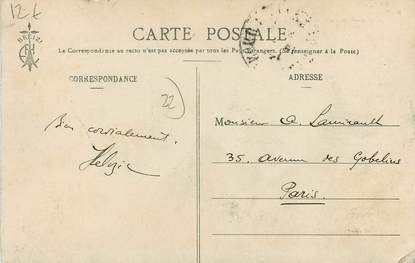 12 €
CARTE POSTALE
La Correspondance au recto n'est pas acceptée par tous les Pays étrangers. (Se renseigner à la Poste)
CORRESPONDANCE
22
Bien cordialement.
ADRESSE
Monsieur A.
35, Avenue des Gobelins
Paris.